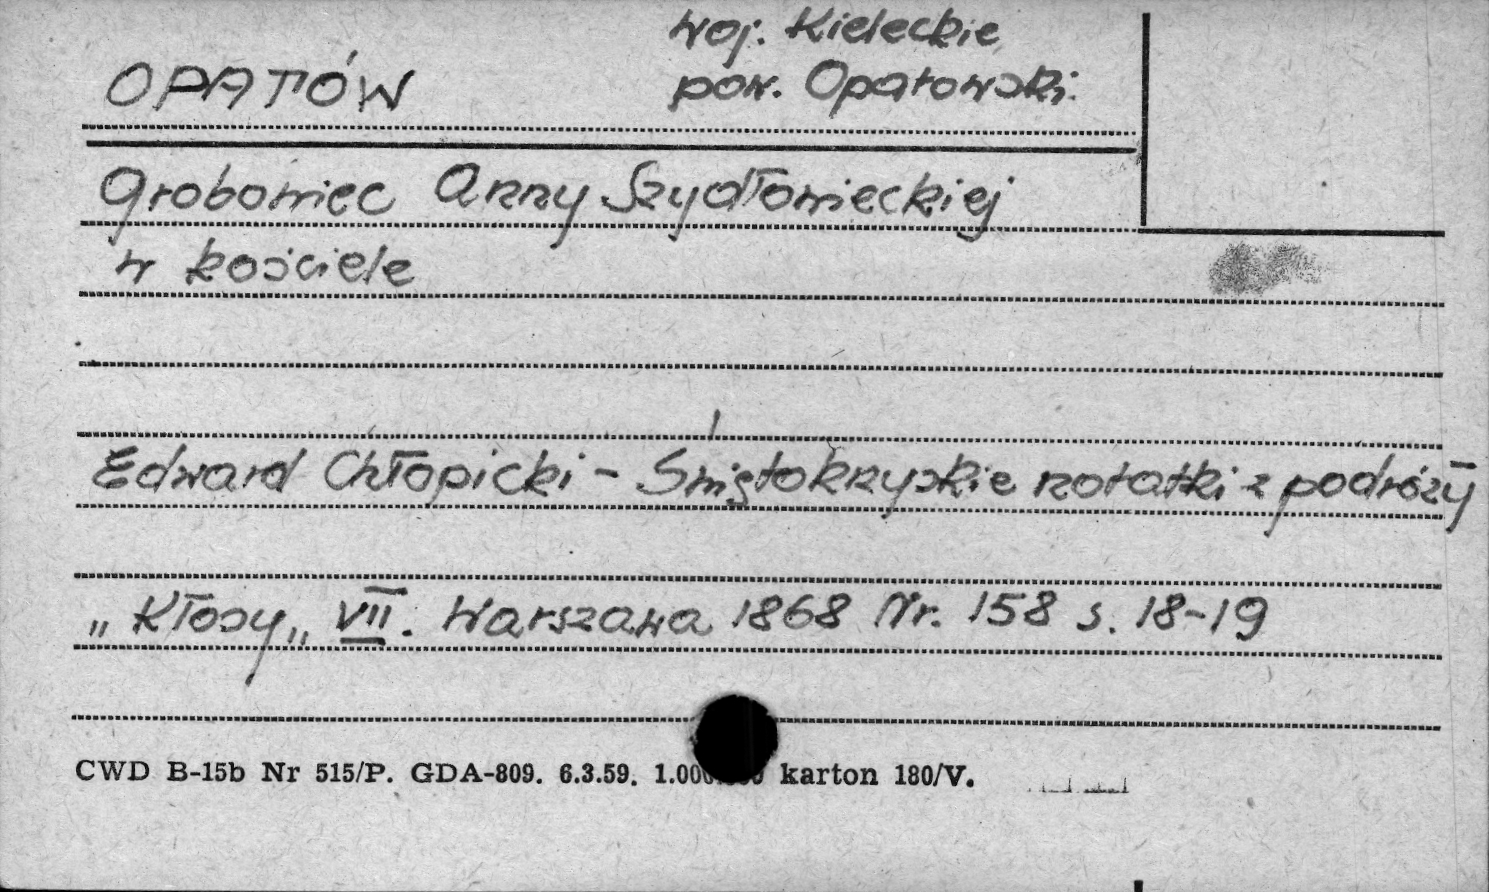 OPATÓW
woj. Kieleckie
pow. Opatowski.
Grobowiec Anny Szydłowieckiej
w kościele
Edward Chłopicki - Świętokrzyskie notatki z podróży
„Kłosy„ VII. Warszawa 1868 Nr. 158 s. 18-19
CWD B-15b Nr 515/P. GDA-809. 6.3.59. karton 180/V.